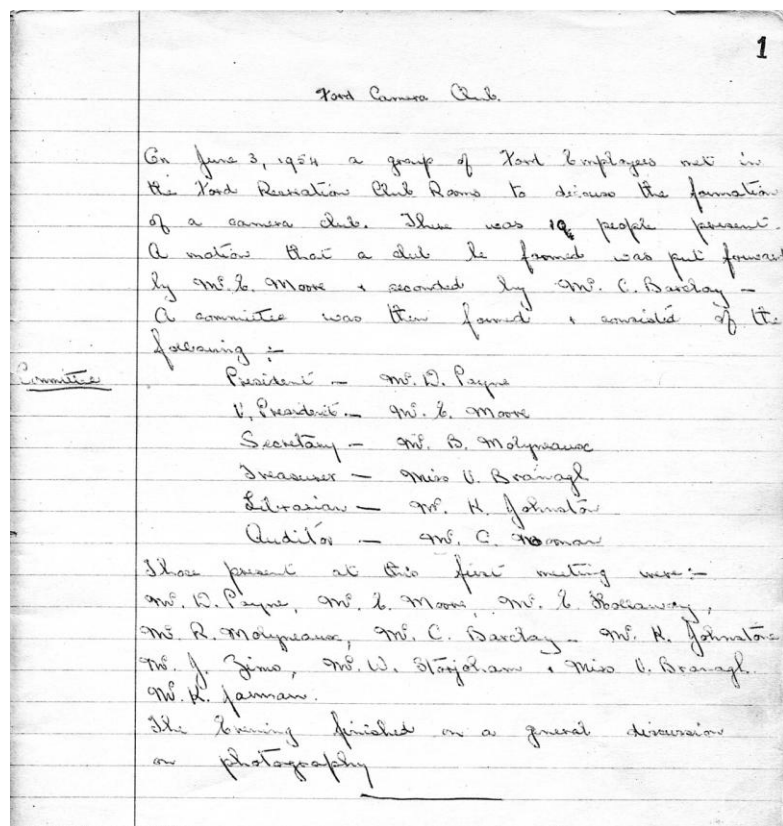 1
Ford Camera Club.
On June 3, 1954 a group of Ford Employees met in
the Ford Recreation Club Rooms to discuss the formation
of a camera club. There was 10 people present.
A motion that a club be formed was put forward
by Mr. E. Moore & seconded by Mr. C. Barclay –
A committee was then formed & consisted of the
following :–
Committee
President – Mr. D. Payne
V. President. – Mr. E. Moore
Secretary – Mr. B. Molyneaux
Treasurer – Miss V. Branagh
Librarian – Mr. K. Johnston
Auditor – Mr. C.
Those present at this first meeting were:–
Mr. D. Payne, Mr. E. Moore, Mr. E. Hollaway,
Mr. R. Molyneaux, Mr. C. Barclay – Mr. K. Johnstone
Mr. J. Zimo, Mr. W. Storjoham & Miss V. Branagh.
Mr. K. Jarman.
The Evening finished on a general discussion
on photography